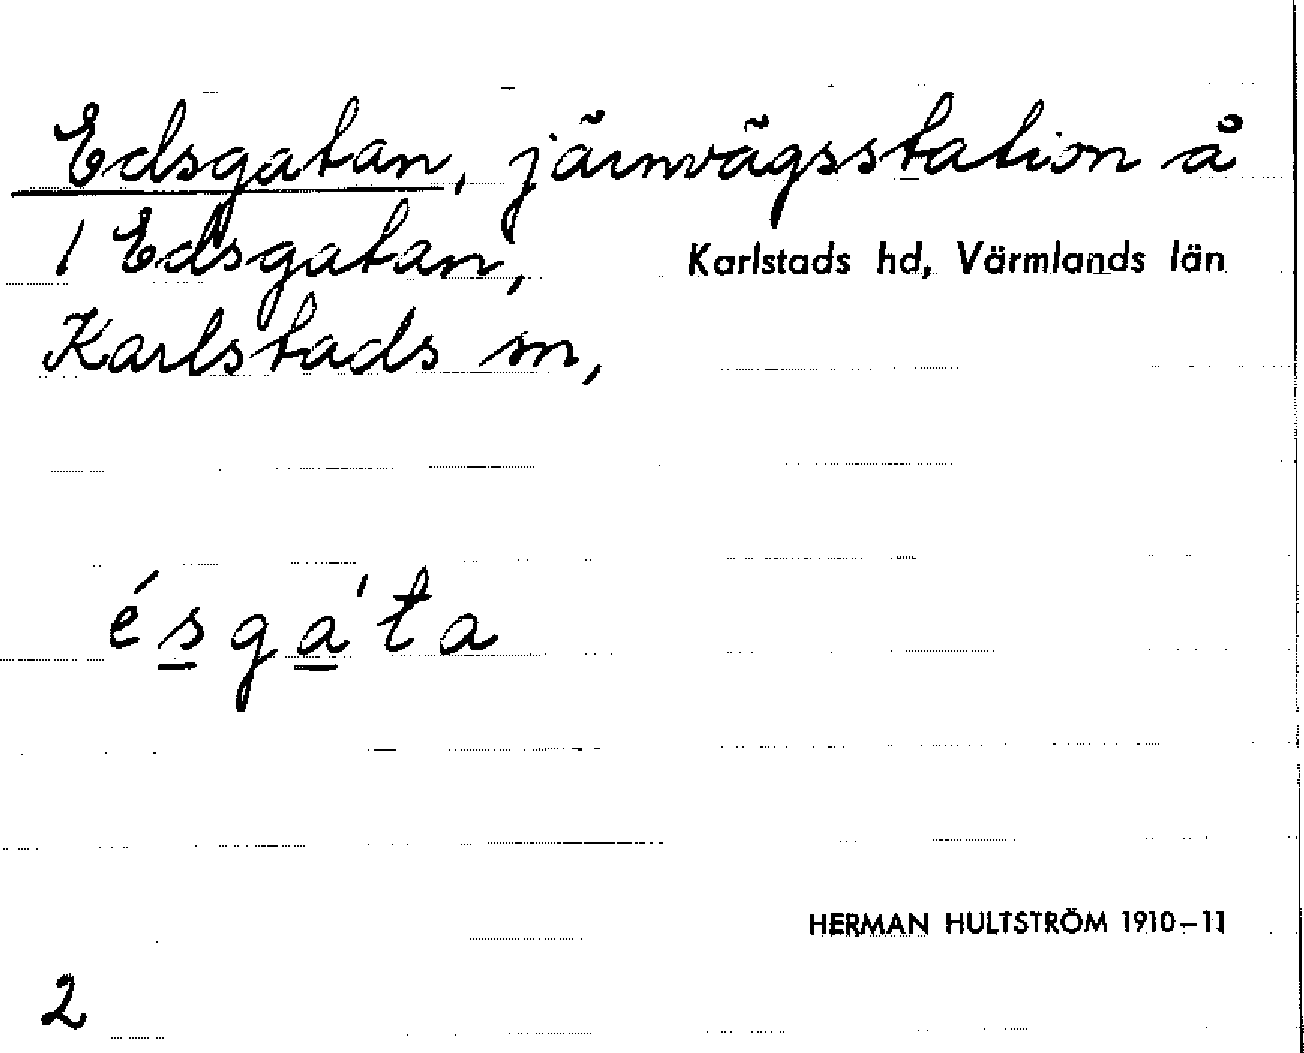 Edsgatan, järnvägsstation å
1 Edsgatan,
Karlstads hd, Värmlands län
Karlstads sn,
é s g a ' t a
HERMAN HULTSTRÖM 1910–11
2